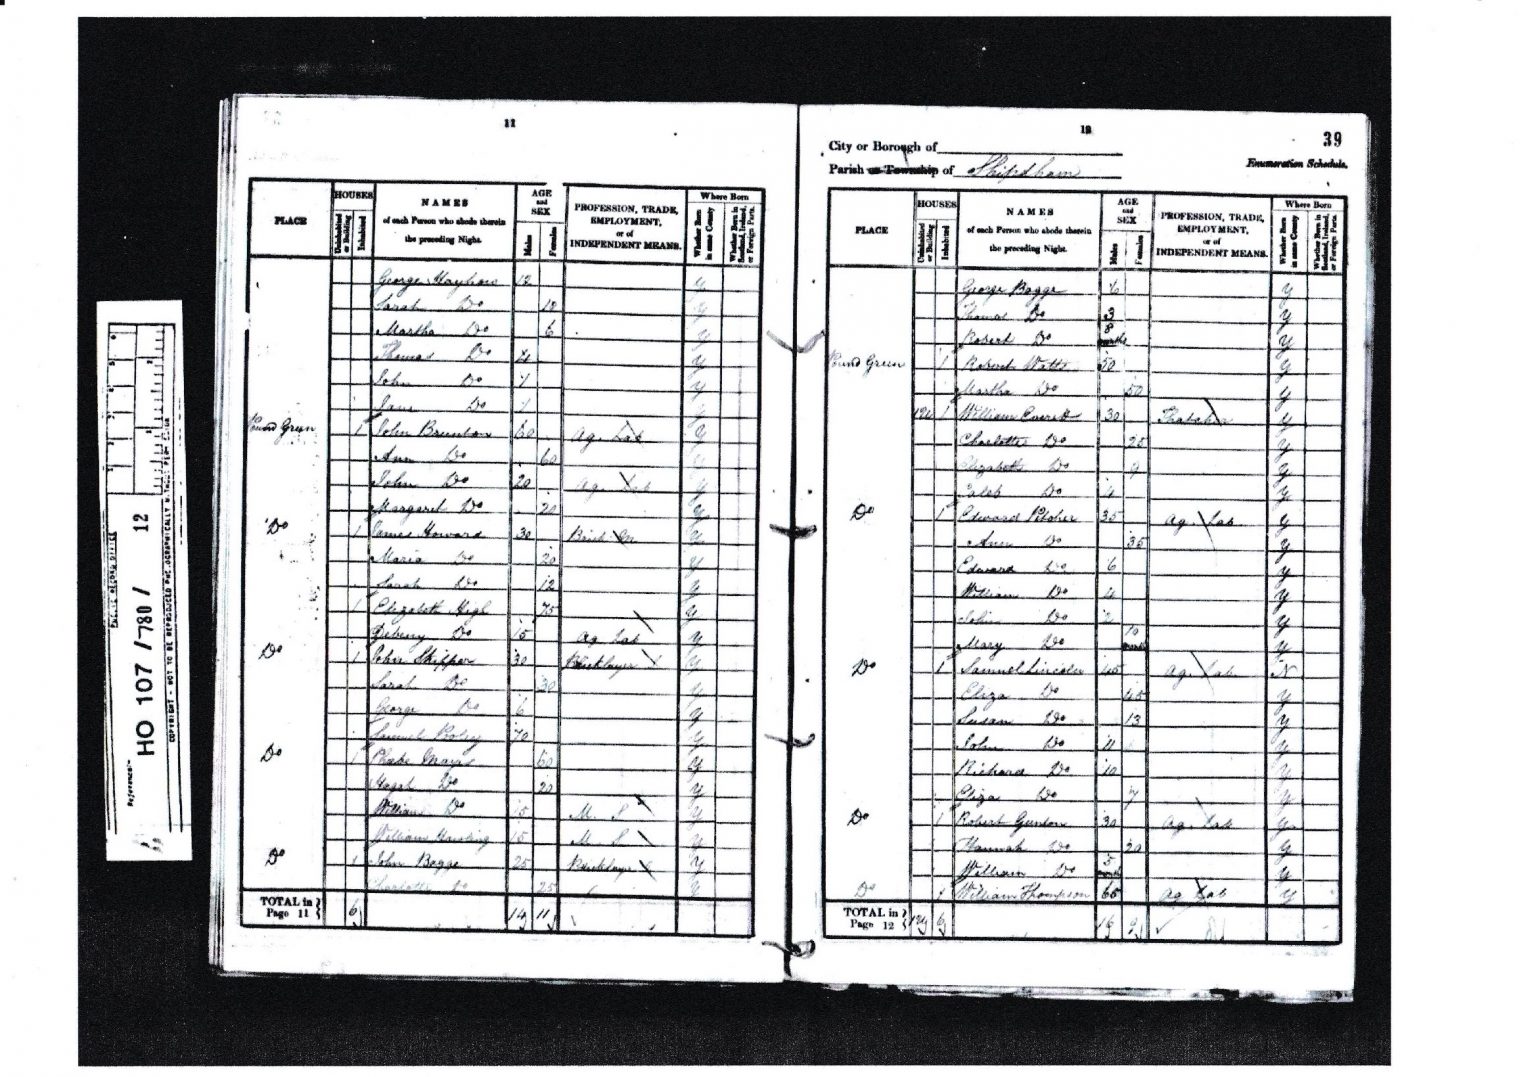 11
PLACE
HOUSES
Uninhabited or Building
Inhabited
NAMES
of each Person who abode therein
the preceding Night.
AGE
and
SEX
Males
Females
PROFESSION, TRADE,
EMPLOYMENT,
or of
INDEPENDENT MEANS.
Where Born
Whether Born in same County
Whether Born in Scotland, Ireland, or Foreign Parts.
George 12 y
Sarah Do 12 y
Martha Do 6 y
Thomas Do 4 y
John Do y
Jane Do y
Pound Green 1 John Brunton 60 Ag. Lab y
Ann Do 60 y
John Do 20 Ag. Lab y
Margaret Do 20 y
Do 1 James Howard 30 y
Maria Do 20 y
Sarah Do 12 y
1 Elizabeth High 75 y
Do 15 Ag. Lab y
Do 1 John Skipper 30 Bricklayer y
Sarah Do 30 y
George Do 6 y
Samuel 70 y
Do 1 Phoebe 60 y
Do 20 y
William Do 15 M. S y
William 15 M. S y
Do 1 John Bagge 25 Bricklayer y
Charlotte Do 25 y
TOTAL in
Page 11 6 14 11
12
39
City or Borough of
Parish or Township of Shipdham
Enumeration Schedule.
PLACE
HOUSES
Uninhabited or Building
Inhabited
NAMES
of each Person who abode therein
the preceding Night.
AGE
and
SEX
Males
Females
PROFESSION, TRADE,
EMPLOYMENT,
or of
INDEPENDENT MEANS.
Where Born
Whether Born in same County
Whether Born in Scotland, Ireland, or Foreign Parts.
George Bagge 6 y
Thomas Do 3 y
Robert Do 8 months y
Pound Green 1 Robert Watts 50 y
Martha Do 50 y
1 William Everett 30 Thatcher y
Charlotte Do 25 y
Elizabeth Do 9 y
Caleb Do 4 y
Do 1 Edward Pitcher 35 Ag. Lab y
Ann Do 35 y
Edward Do 6 y
William Do 4 y
John Do 2 y
Mary Do 10 months y
Do 1 Samuel Lincoln 45 Ag. Lab N
Eliza Do 45 y
Susan Do 13 y
John Do 11 y
Richard Do 10 y
Eliza Do 7 y
Do 1 Robert Gunton 30 Ag. Lab y
Hannah Do 20 y
William Do 5 months y
Do 1 William Thompson 65 Ag Lab y
TOTAL in
Page 12 6 16 9
PUBLIC RECORD OFFICE
Reference:-
HO 107 / 780 / 12
COPYRIGHT - NOT TO BE REPRODUCED PHOTOGRAPHICALLY WITHOUT PERMISSION